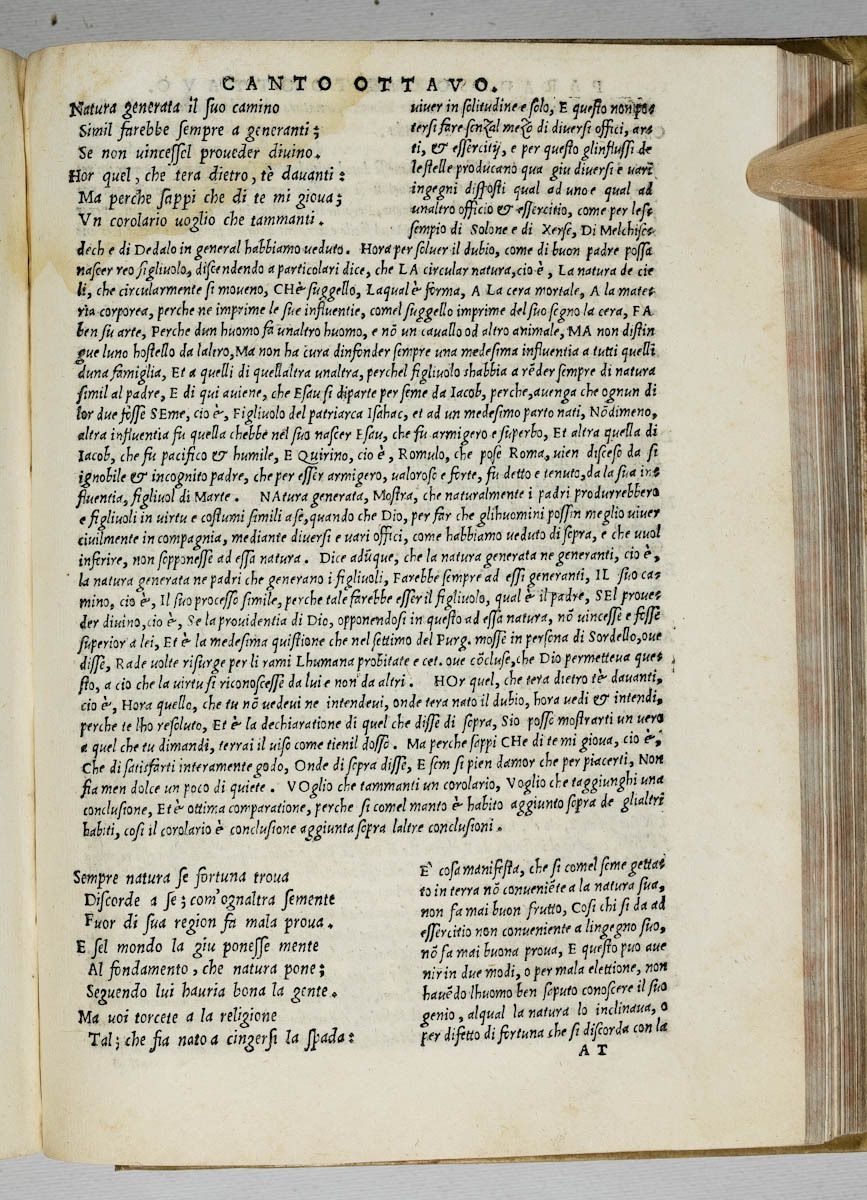 CANTO OTTAVO.
Natura generata il suo camino
Simil farebbe sempre a generanti;
Se non uincessel proueder diuino.
Hor quel, che tera dietro, tè dauanti:
Ma perche sappi che di te mi gioua;
Vn corolario uoglio che tammanti.
uiuer in solitudine e solo, E questo non po-
tersi fare senzal mezo di diuersi offici, ar-
ti, & essercitij, e per questo glinflussi de
le stelle producano qua giu diuersi e uari
ingegni disposti qual ad uno e qual ad
unaltro officio & essercitio, come per les-
sempio di Solone e di Xerse, Di Melchise-
dech e di Dedalo in general habbiamo ueduto. Hora per soluer il dubio, come di buon padre possa
nascer reo figliuolo, discendendo a particolari dice, che LA circular natura, cio è, La natura de cie
li, che circularmente si moueno, CHè suggello, Laqual è forma, A La cera mortale, A la mate-
ria corporea, perche ne imprime le sue influentie, comel suggello imprime del suo segno la cera, FA
ben su arte, Perche dun huomo fa unaltro huomo, e nō un cauallo od altro animale, MA non distin
gue luno hostello da laltro, Ma non ha cura dinfonder sempre una medesima influentia a tutti quelli
duna famiglia, Et a quelli di quellaltra unaltra, perchel figliuolo shabbia a rēder sempre di natura
simil al padre, E di qui auiene, che Esau si diparte per seme da Iacob, perche, auenga che ognun di
lor due fosse SEme, cio è, Figliuolo del patriarca Isahac, et ad un medesimo parto nati, Nōdimeno,
altra influentia fu quella chebbe nel suo nascer Esau, che fu armigero e superbo, Et altra quella di
Iacob, che fu pacifico & humile, E Quirino, cio è, Romulo, che pose Roma, uien disceso da si
ignobile & incognito padre, che per esser armigero, ualoroso e forte, fu detto e tenuto, da la sua in-
fluentia, figliuol di Marte. NAtura generata, Mostra, che naturalmente i padri produrrebbero
e figliuoli in uirtu e costumi simili a se, quando che Dio, per far che glihuomini possin meglio uiuer
ciuilmente in compagnia, mediante diuersi e uari offici, come habbiamo ueduto di sopra, e che uuol
inferire, non sopponesse ad essa natura. Dice adūque, che la natura generata ne generanti, cio è,
la natura generata ne padri che generano i figliuoli, Farebbe sempre ad essi generanti, IL suo ca-
mino, cio è, Il suo processo simile, perche tale farebbe esser il figliuolo, qual è il padre, SEl proue-
der diuino, cio è, Se la prouidentia di Dio, opponendosi in questo ad essa natura, nō uincesse e fosse
superior a lei, Et è la medesima quistione che nel settimo del Purg. mosse in persona di Sordello, oue
disse, Rade uolte risurge per li rami Lhumana probitate e cet. oue cōcluse, che Dio permetteua que-
sto, a cio che la uirtu si riconoscesse da lui e non da altri. HOr quel, che tera dietro tè dauanti,
cio è, Hora quello, che tu nō uedeui ne intendeui, onde tera nato il dubio, hora uedi & intendi,
perche te lho resoluto, Et è la dechiaratione di quel che disse di sopra, Sio posso mostrarti un uero
a quel che tu dimandi, terrai il uiso come tienil dosso. Ma perche sappi CHe di te mi gioua, cio è,
Che di satisfarti interamente godo, Onde di sopra disse, E sem si pien damor che per piacerti, Non
fia men dolce un poco di quiete. VOglio che tammanti un corolario, Voglio che taggiunghi una
conclusione, Et è ottima comparatione, perche si comel manto è habito aggiunto sopra de glialtri
habiti, cosi il corolario è conclusione aggiunta sopra laltre conclusioni.
Sempre natura se fortuna troua
Discorde a se; com'ognaltra semente
Fuor di sua region fa mala proua.
E sel mondo la giu ponesse mente
Al fondamento, che natura pone;
Seguendo lui hauria bona la gente.
Ma uoi torcete a la religione
Tal; che fia nato a cingersi la spada:
E' cosa manifesta, che si comel seme getta-
to in terra nō conueniēte a la natura sua,
non fa mai buon frutto, Cosi chi si da ad
essercitio non conueniente a lingegno suo,
nō fa mai buona proua, E questo puo aue
nir in due modi, o per mala elettione, non
hauēdo lhuomo ben saputo conoscere il suo
genio, alqual la natura lo inclinaua, o
per difetto di fortuna che si discorda con la
AT